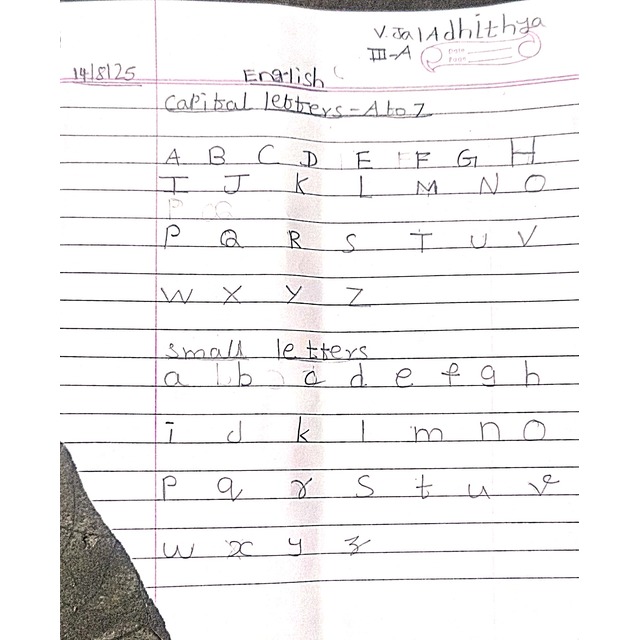 V. Jai Adhithya
III-A
Date
Page
14/8/25 English
Capital letters - A to Z
A B C D E F G H
I J K L M N O
P Q R S T U V
W X Y Z
Small letters
a b c d e f g h
i j k l m n o
p q r s t u v
w x y z